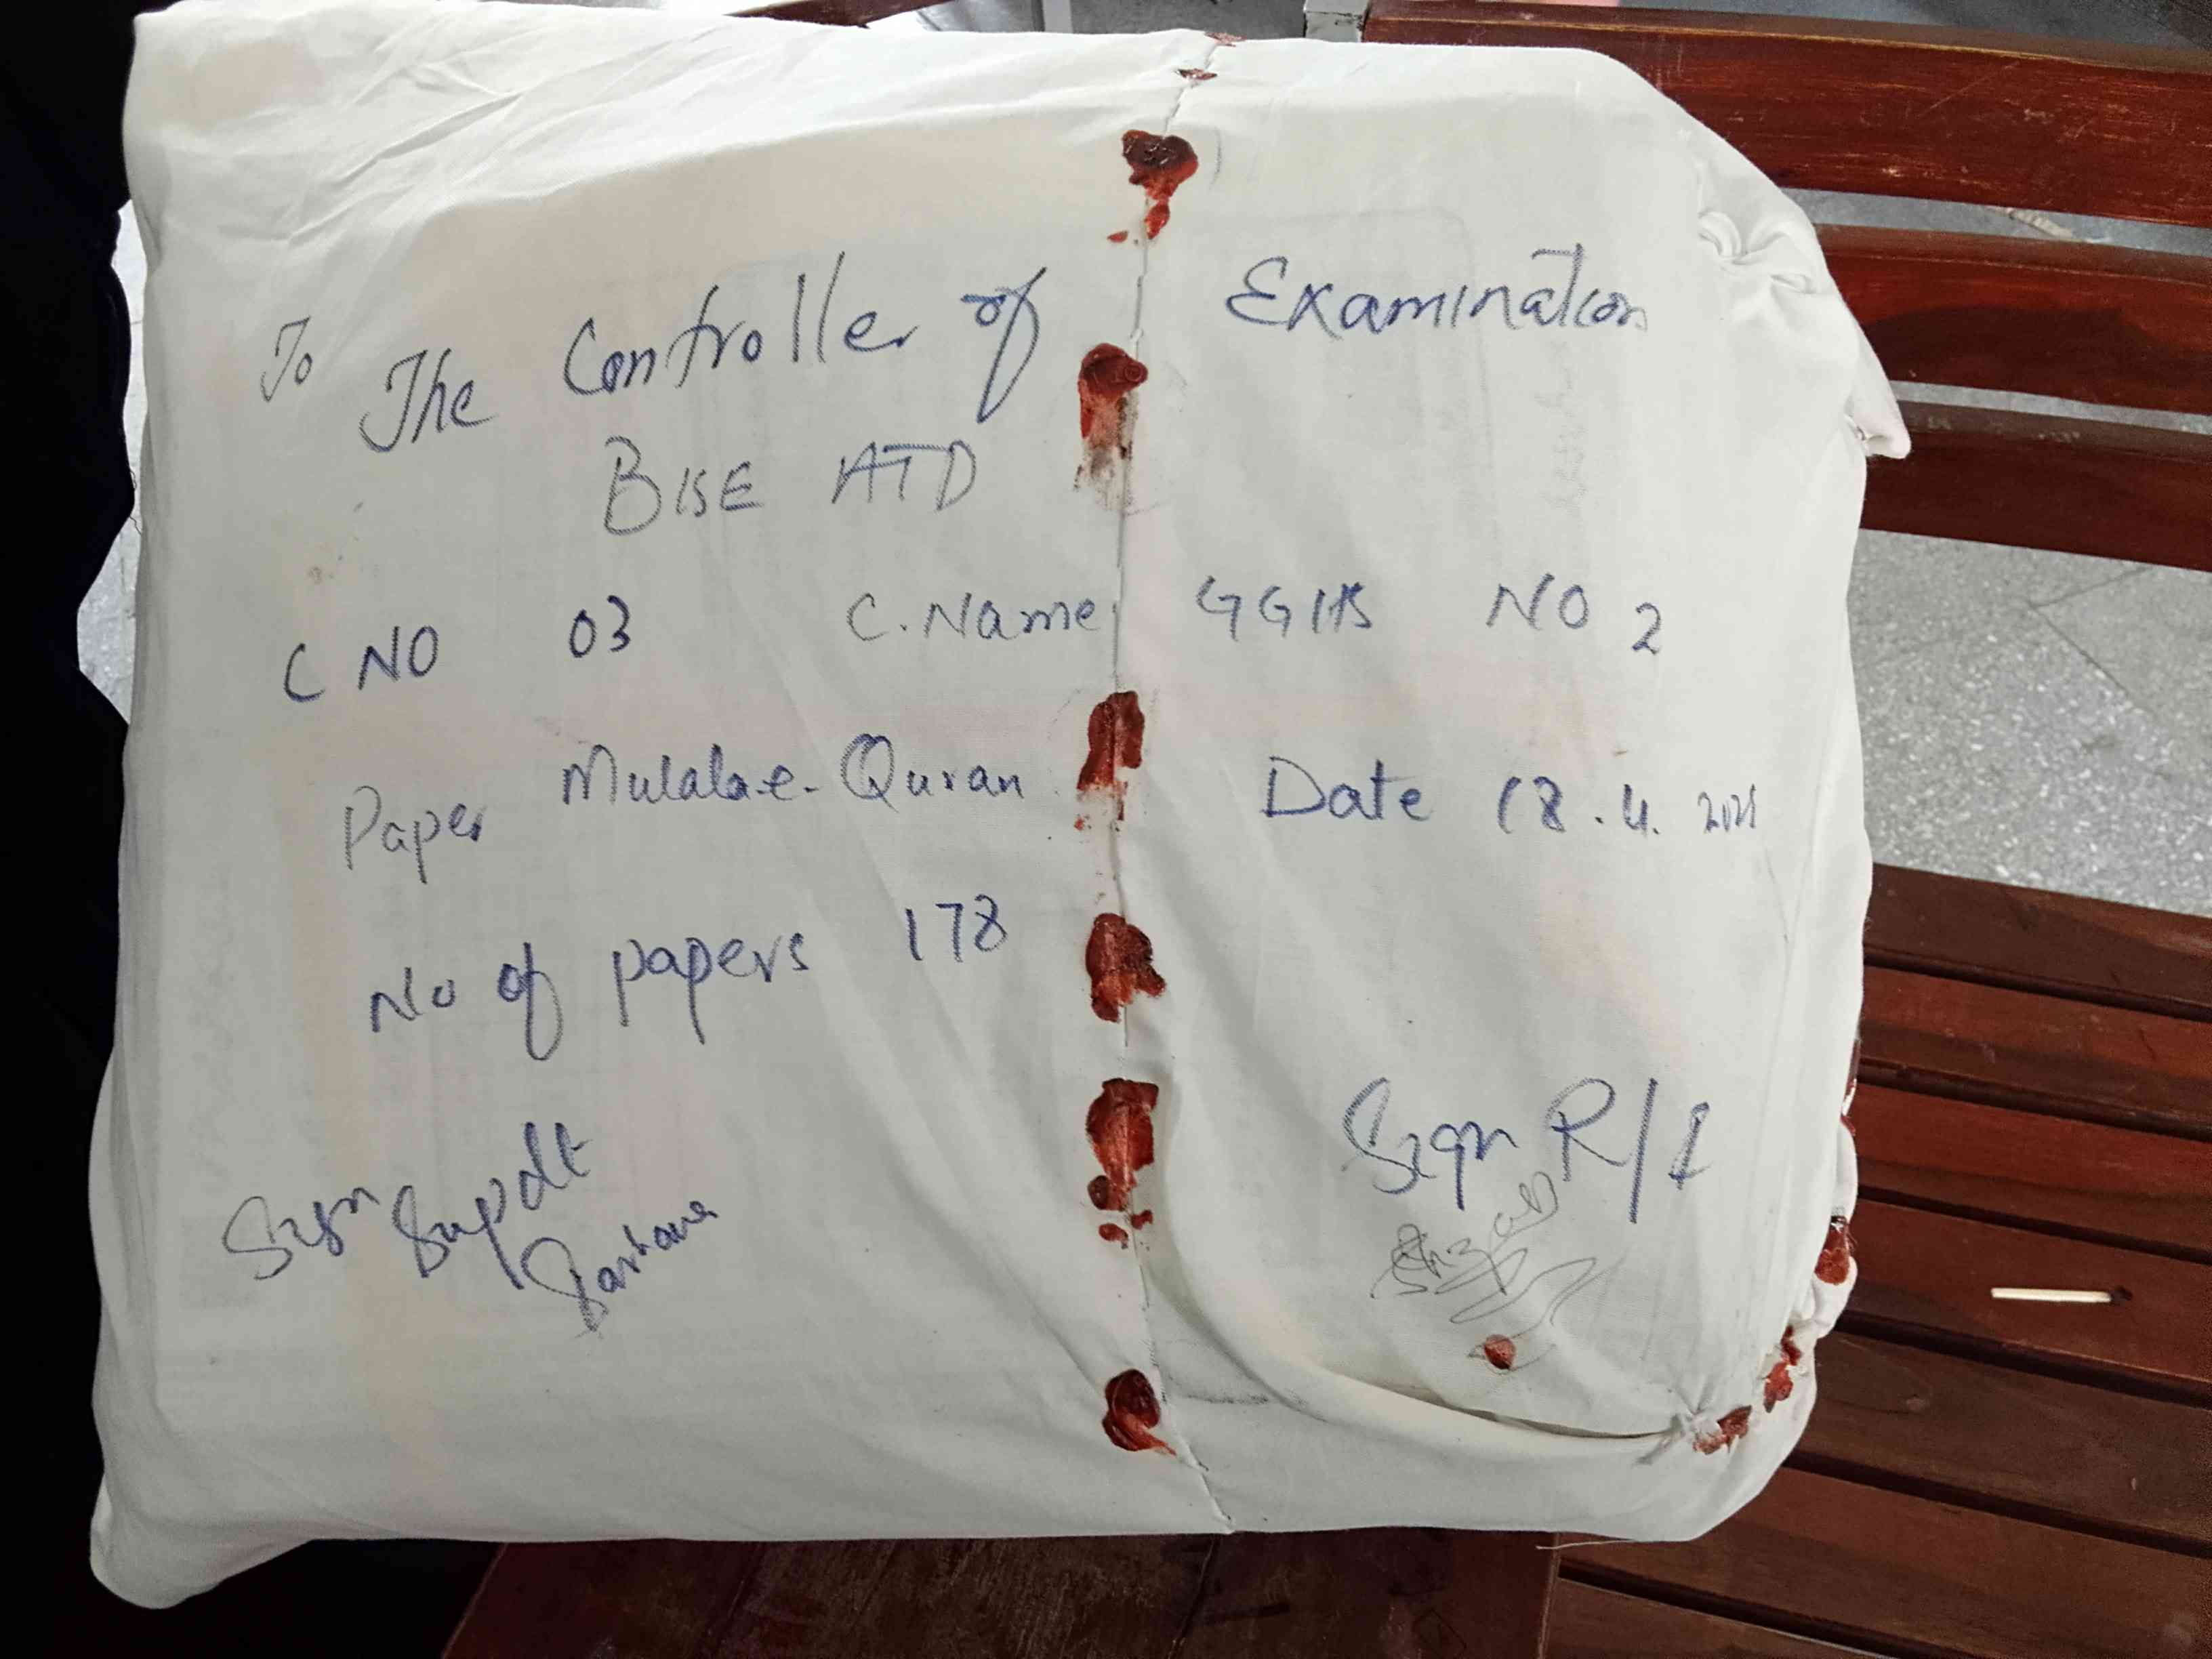 To
The Controller of Examination
BISE ATD
C NO 03 C. Name GGHS NO 2
Paper Mulala-e-Quran Date 18.4.
No of papers 178
Sign Supdt Sign R/I